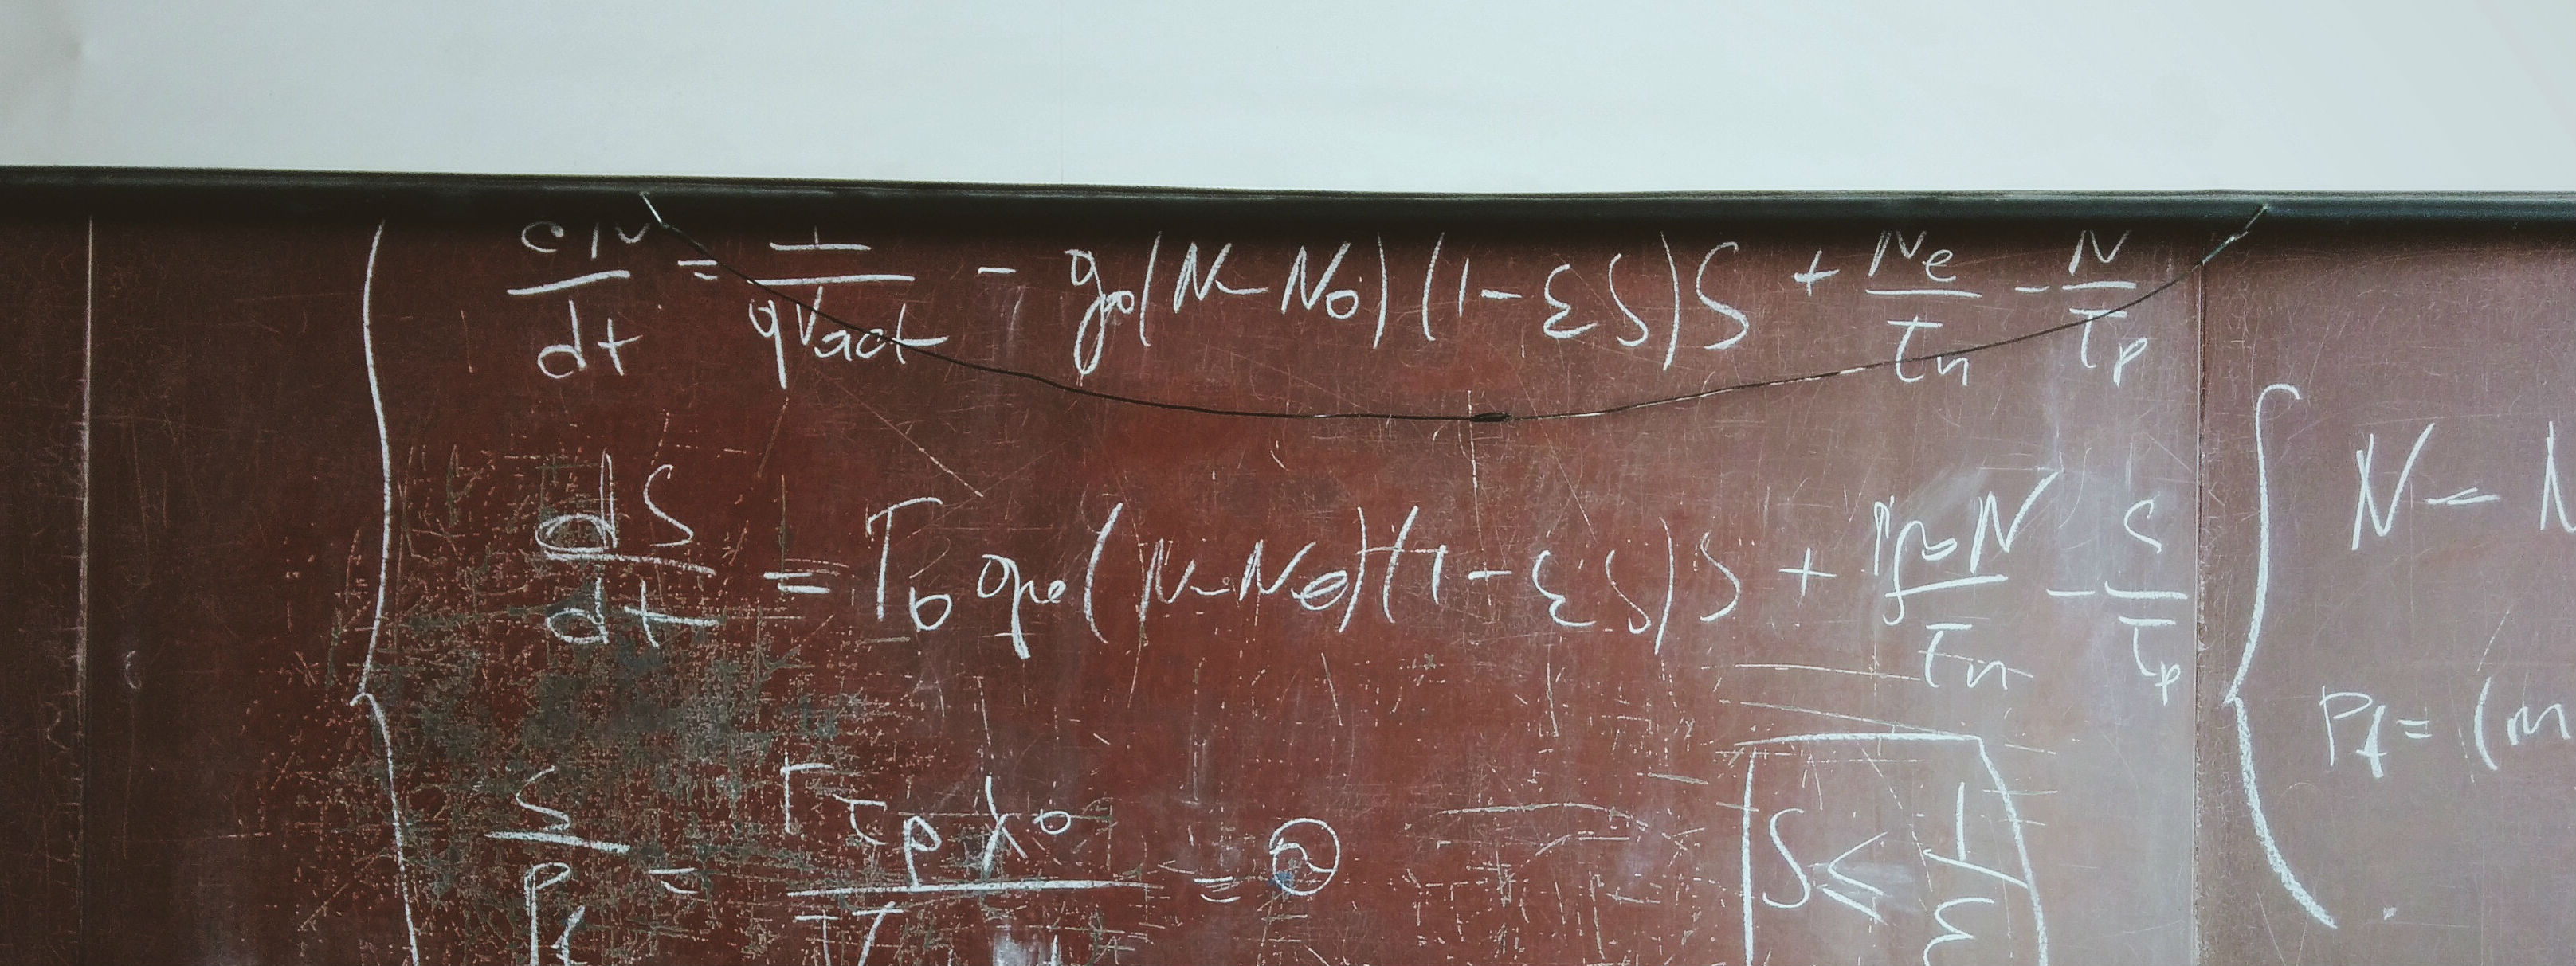 dN/dt = I/(qVact) - g0(N - N0)(1 - εS)S + Ne/τn - N/τp
dS/dt = Γ0 g0(N - N0)(1 - εS)S + Γβ0N/τn - S/τp
S/Pf = Γτpλ0/V =
S ≤ 1/ε
N -
Pf = (m